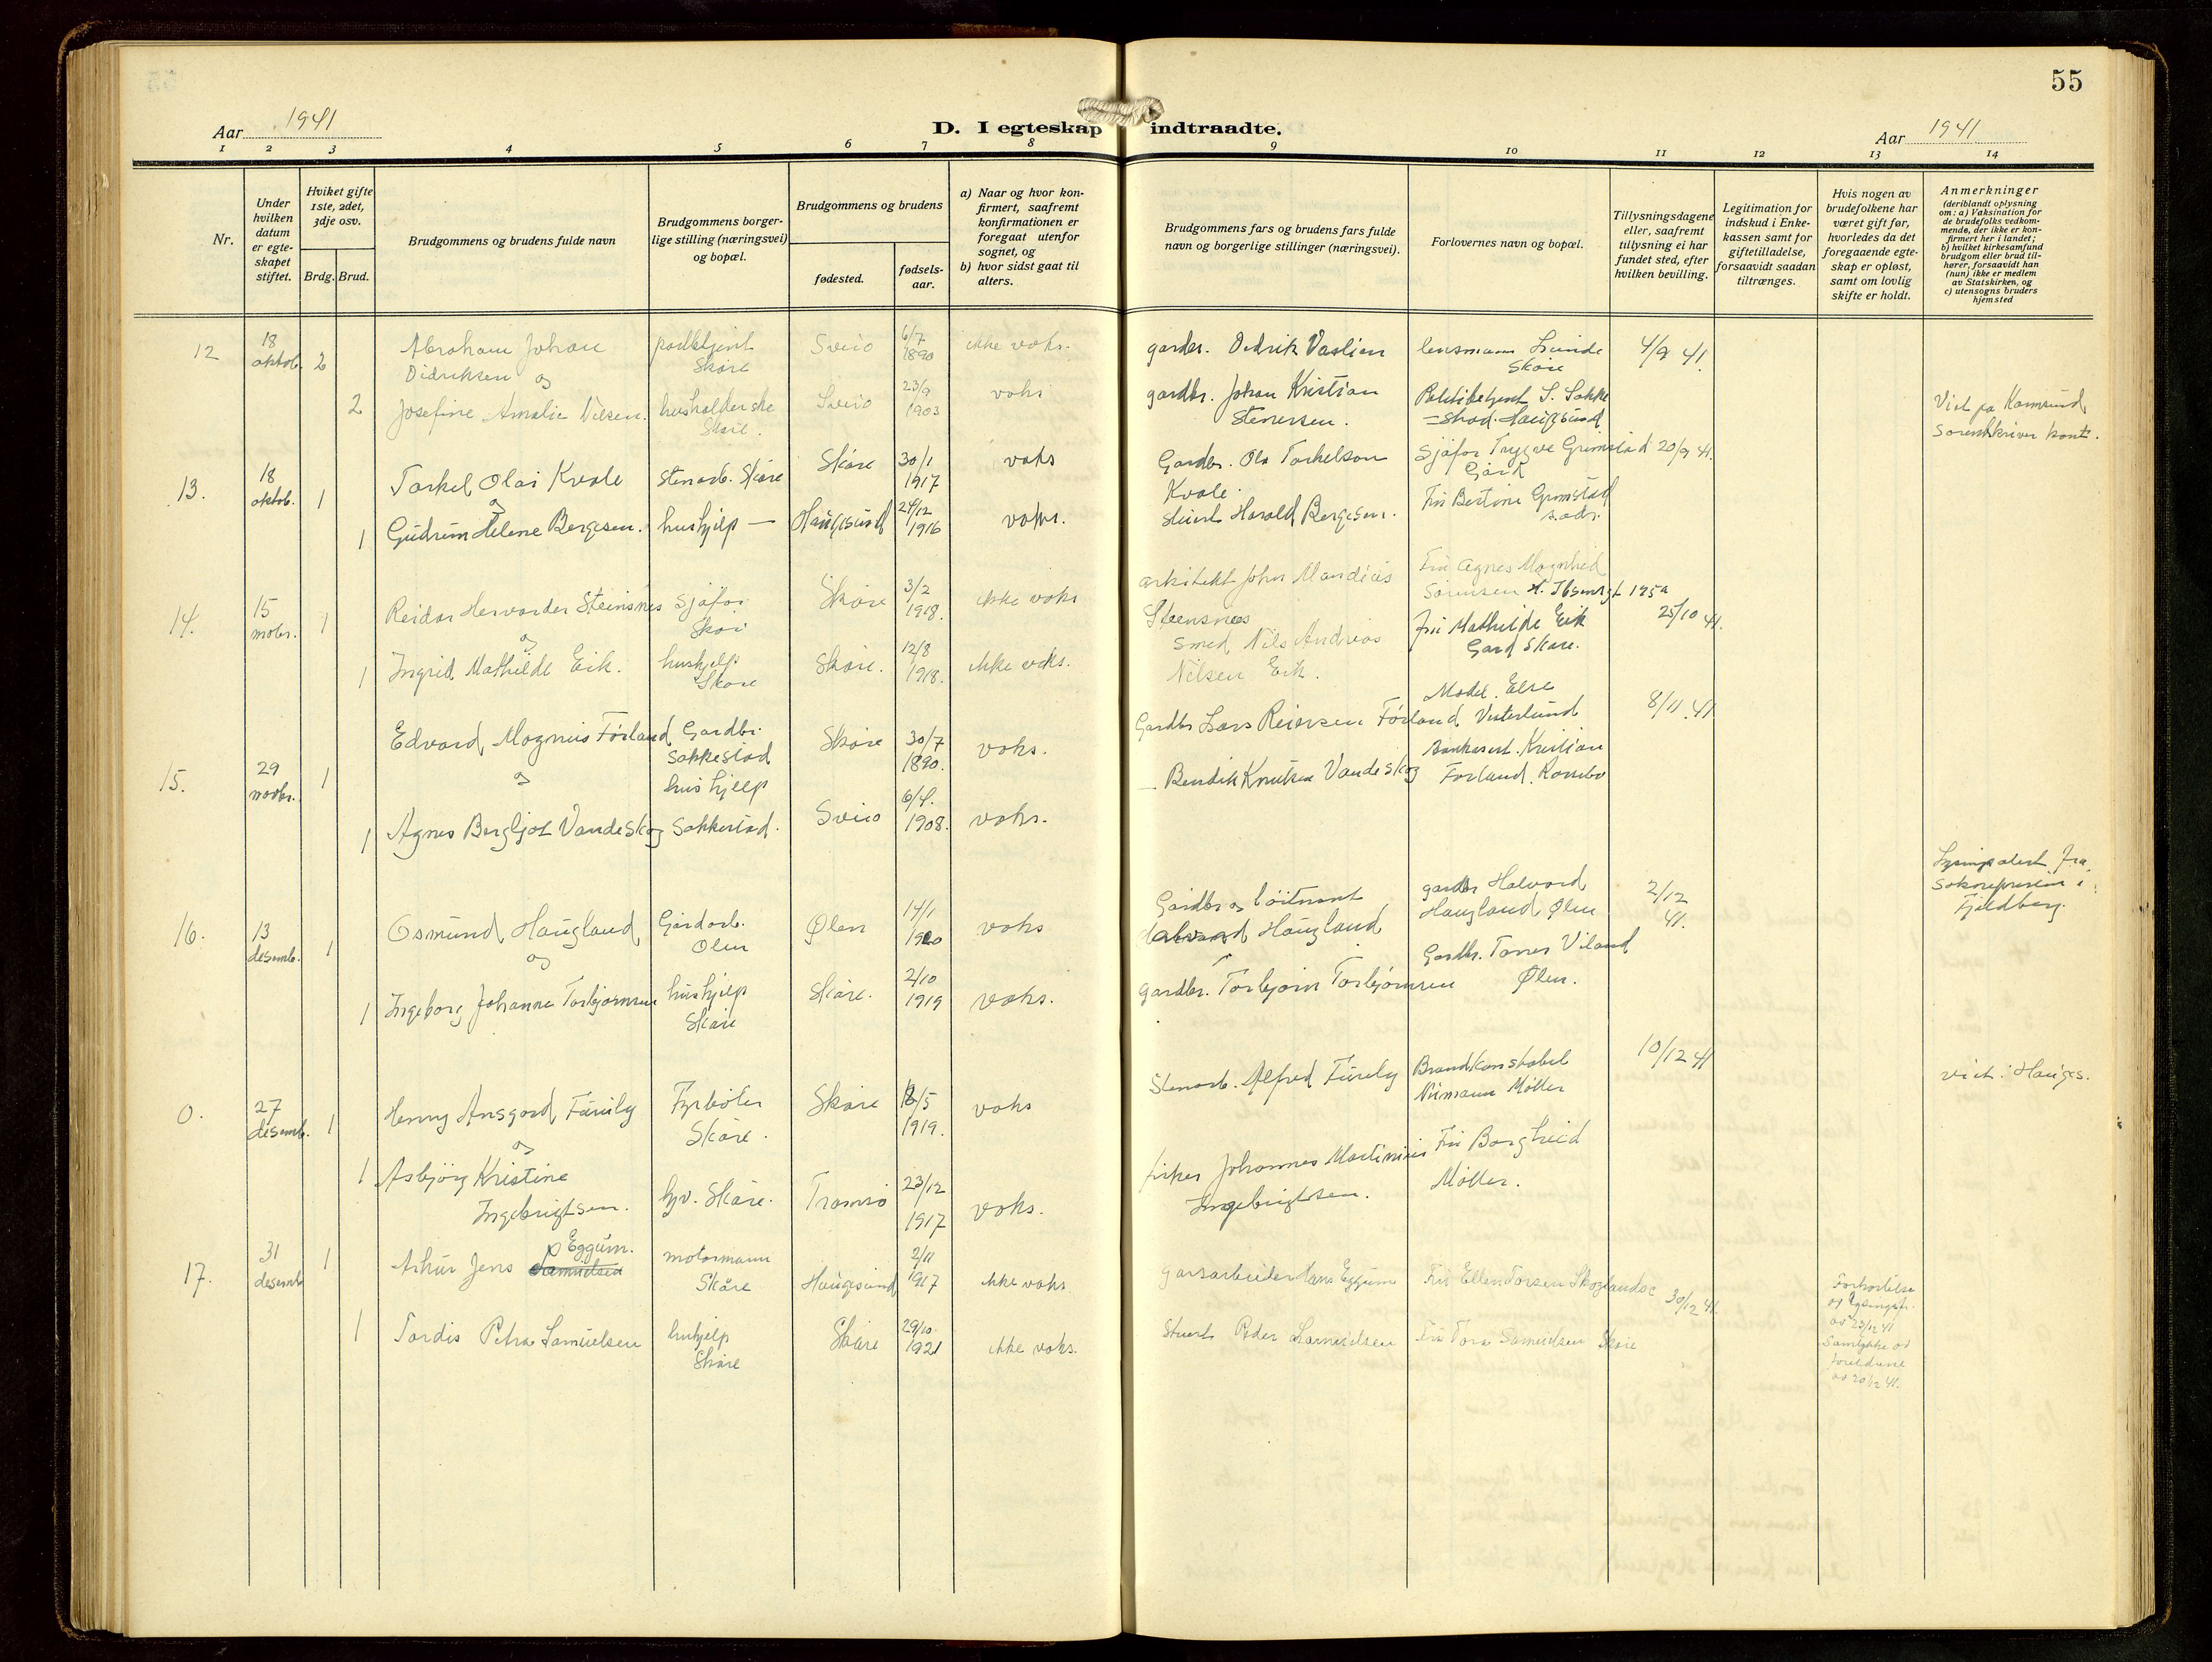 55
Aar 1941
D. I egteskap indtraadte.
Aar 1941
1 2 3 4 5 6 7 8 9 10 11 12 13 14
Nr.
Under hvilken datum er egte-skapet stiftet.
Hviket gifte 1ste, 2det, 3dje osv.
Brdg. Brud.
Brudgommens og brudens fulde navn
Brudgommens borger-lige stilling (næringsvei) og bopæl.
Brudgommens og brudens
fødested.
fødsels-aar.
a) Naar og hvor kon-firmert, saafremt konfirmationen er foregaat utenfor sognet, og
b) hvor sidst gaat til alters.
Brudgommens fars og brudens fars fulde navn og borgerlige stillinger (næringsvei).
Forlovernes navn og bopæl.
Tillysningsdagene eller, saafremt tillysning ei har fundet sted, efter hvilken bevilling.
Legitimation for indskud i Enke-kassen samt for giftetilladelse, forsaavidt saadan tiltrænges.
Hvis nogen av brudefolkene har været gift før, hvorledes da det foregaaende egte-skap er opløst, samt om lovlig skifte er holdt.
Anmerkninger
(deriblandt oplysning om: a) Vaksination for de brudefolks vedkom-mende, der ikke er kon-firmert her i landet;
b) hvilket kirkesamfund brudgom eller brud til-hører, forsaavidt han (hun) ikke er medlem av Statskirken, og
c) utensogns bruders hjemsted
12 18 oktob. 2 Abraham Johan Didriksen og Skåre Sveio 6/7 1890 ikke vaks. gardbr. Didrik Vaslien lensmann Lunde Skåre 4/9 41.
2 Josefine Amalie Nilsen. husholderske Skåre. Sveio 23/9 1903 vaks gardbr. Johan Kristian Stenersen. Politibetjent S. Sakkestad. Haugesund Viet på Karmsund Sorenskriver kont.
13. 18 oktob. 1 Torkel Olai Kvale og stenarb. Skåre Skåre 30/1 1917 vaks Gardbr. Ola Torkelson Kvale. Sjåfør Trygve Grimstad Gard 20/9 41.
1 Gudrun Helene Bergesen. hushjelp — Haugesund 24/12 1916 vaks. Stuert Harald Bergesen. Fru Bertine Grimstad s.ads.
14. 15 nobr. 1 Reidar Hervarder Steinsnes og Sjåfør Skåre Skåre 3/2 1918. ikke vaks arkitekt John Mandius Steensnes Fru Agnes Magnhild Sørensen H. Ibsensgt 125a 25/10 41.
1 Ingrid Mathilde Eik. hushjelp Skåre Skåre. 12/8 1918. ikke vaks. Smed Nils Andreas Nilsen Eik. Fru Mathilde Eik Gard Skåre.
15. 29 novbr. 1 Edvard Magnus Førland og Gardbr. Sakkestad Skåre 30/7 1890. vaks. Gardbr Lars Reiersen Førland Model. Else Vesterlund 8/11 41
1 Agnes Bergljot Vandeskog hushjelp Sakkestad. Sveio 6/4. 1908. vaks. — Bendik Knutsen Vandeskog Kristian Førland.
16. 13 desemb. 1 Osmund Haugland og Gårdarb. Ølen Ølen 14/1 1920 vaks Gårdbr og løitnant Halvard Haugland gardbr Halvard Haugland, Ølen 2/12 41. Lysingsatest fra Soknepresten i Fjeldberg.
1 Ingeborg Johanna Torbjørnsen hushjelp Skåre Skåre. 2/10 1919 vaks. gardbr. Torbjørn Torbjørnsen Gardbr. Tores Viland Ølen.
0. 27 desemb. 1 Henry Ansgard Fürily og Fyrbøter Skåre. Skåre 18/5 1919. vaks Stenarb. Alfred Fürily Brandkonstabel Nümann Møller 10/12 41 viet i Hauges.
1 Asbjørg Kristine Ingebrigtsen. hjv. Skåre. Tromsø 23/12 1917 vaks. fisker Johannes Martinius Ingebrigtsen. Fru Borghild Møller.
17. 31 desemb 1 Arthur Jens Samuelsen Eggum. motormann Skåre Haugesund 2/11 1917 ikke vaks garsarbeider Hans Eggum Fru Ellen Torsen 30/12 41.
1 Tordis Petra Samuelsen hushjelp Skåre Skåre 29/10. 1921 ikke vaks. Stuert Peder Samuelsen Fru Tora Samuelsen Skåre Forkortelse av lysingsfr. av 23/12 41 Samtykke av foreldrene av 20/12 41.